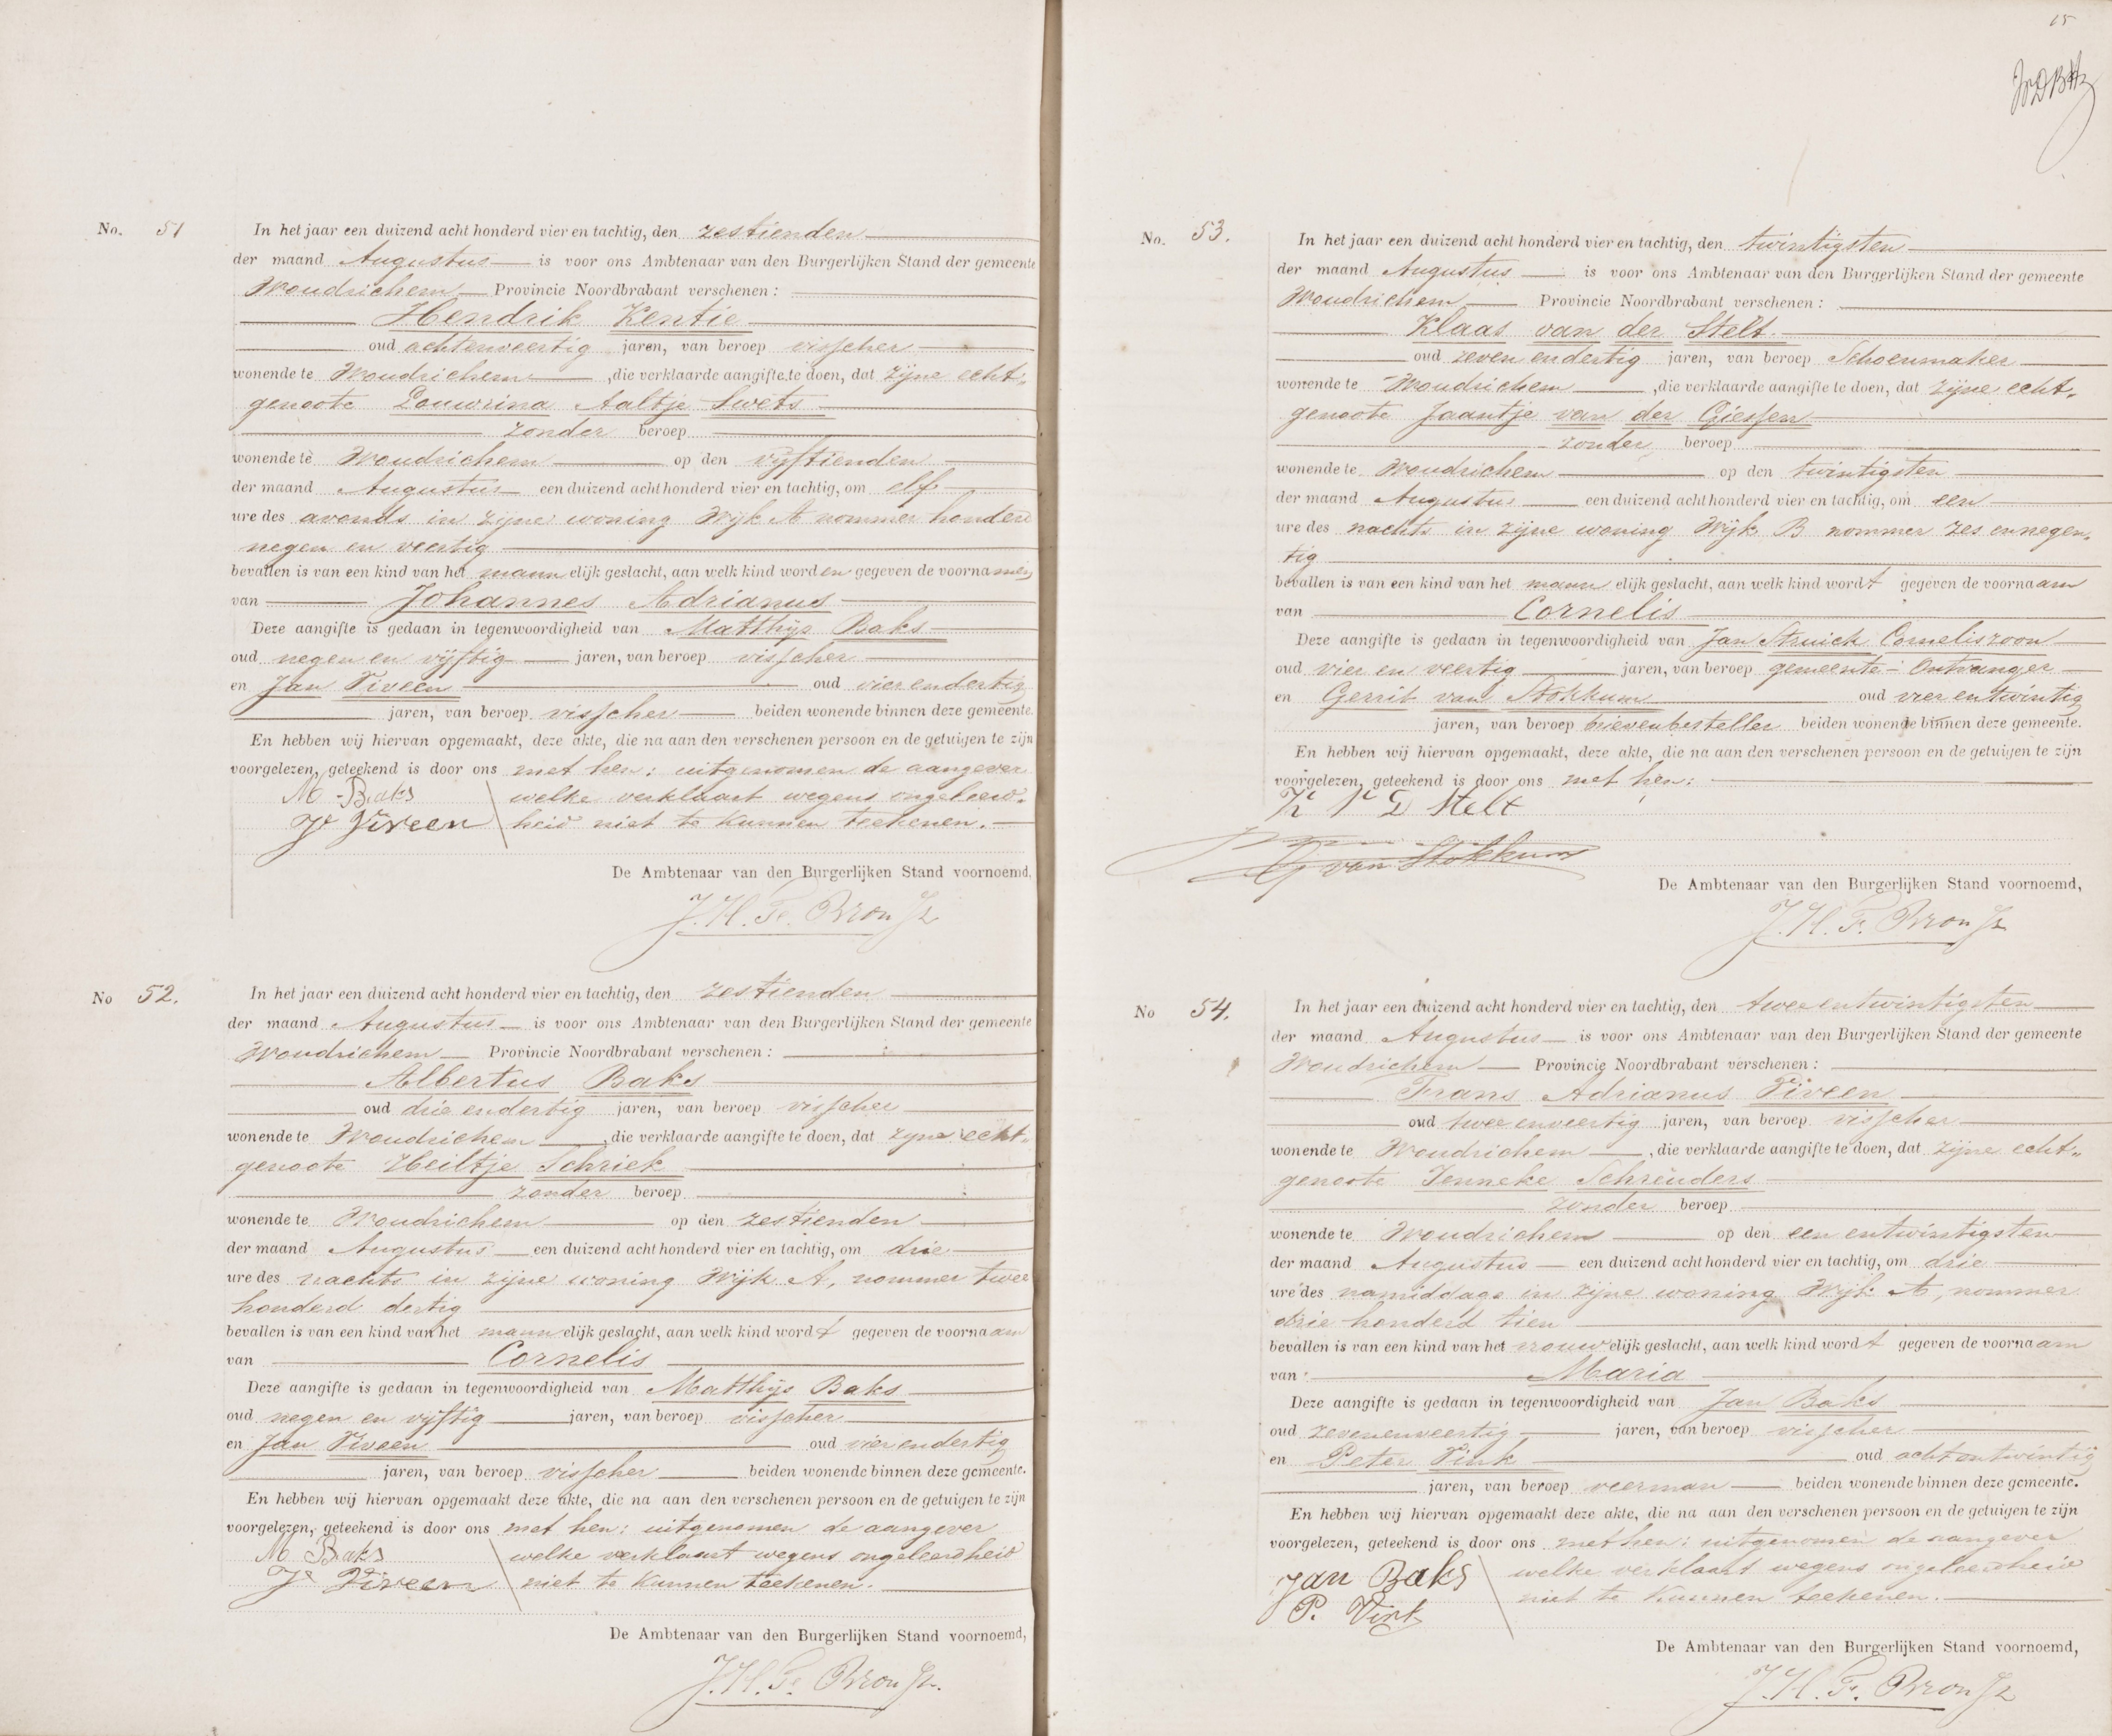 No. 51
In het jaar een duizend acht honderd vier en tachtig, den zestienden
der maand Augustus is voor ons Ambtenaar van den Burgerlijken Stand der gemeente
Woudrichem Provincie Noordbrabant verschenen:
Hendrik Kentie
oud achtenveertig jaren, van beroep visscher
wonende te Woudrichem, die verklaarde aangifte te doen, dat zijne echt-
genoote Louwrina Aaltje Swets
zonder beroep
wonende te Woudrichem op den vijftienden
der maand Augustus een duizend acht honderd vier en tachtig, om elf
ure des avonds in zijne woning Wijk A nommer honderd
negen en veertig
bevallen is van een kind van het mannelijk geslacht, aan welk kind worden gegeven de voornamen
van Johannes Adrianus
Deze aangifte is gedaan in tegenwoordigheid van Matthijs Baks
oud negen en vijftig jaren, van beroep visscher
en Jan Viveen oud vierendertig
jaren, van beroep visscher beiden wonende binnen deze gemeente.
En hebben wij hiervan opgemaakt, deze akte, die na aan den verschenen persoon en de getuigen te zijn
voorgelezen, geteekend is door ons met hen: uitgenomen de aangever
M Baks welke verklaart wegens ongeleerd-
J Viveen heid niet te kunnen teekenen.
De Ambtenaar van den Burgerlijken Stand voornoemd,
J. H. F. Bron Jz
No 52.
In het jaar een duizend acht honderd vier en tachtig, den zestienden
der maand Augustus is voor ons Ambtenaar van den Burgerlijken Stand der gemeente
Woudrichem Provincie Noordbrabant verschenen:
Albertus Baks
oud drie endertig jaren, van beroep visscher
wonende te Woudrichem, die verklaarde aangifte te doen, dat zijne echt-
genoote Heiltje Schriek
zonder beroep
wonende te Woudrichem op den zestienden
der maand Augustus een duizend acht honderd vier en tachtig, om drie
ure des nachts in zijne woning Wijk A, nommer twee
honderd dertig
bevallen is van een kind van het mannelijk geslacht, aan welk kind wordt gegeven de voornaam
van Cornelis
Deze aangifte is gedaan in tegenwoordigheid van Matthijs Baks
oud negen en vijftig jaren, van beroep visscher
en Jan Viveen oud vierendertig
jaren, van beroep visscher beiden wonende binnen deze gemeente.
En hebben wij hiervan opgemaakt deze akte, die na aan den verschenen persoon en de getuigen te zijn
voorgelezen, geteekend is door ons met hen: uitgenomen de aangever
M Baks welke verklaart wegens ongeleerdheid
J Viveen niet te kunnen teekenen.
De Ambtenaar van den Burgerlijken Stand voornoemd,
J. H. F. Bron Jz.
15
No. 53.
In het jaar een duizend acht honderd vier en tachtig, den twintigsten
der maand Augustus is voor ons Ambtenaar van den Burgerlijken Stand der gemeente
Woudrichem Provincie Noordbrabant verschenen:
Klaas van der Stelt
oud zeven endertig jaren, van beroep Schoenmaker
wonende te Woudrichem, die verklaarde aangifte te doen, dat zijne echt-
genoote Jaantje van der Giessen
zonder beroep
wonende te Woudrichem op den twintigsten
der maand Augustus een duizend acht honderd vier en tachtig, om een
ure des nachts in zijne woning Wijk B nommer zes ennegen-
tig
bevallen is van een kind van het mannelijk geslacht, aan welk kind wordt gegeven de voornaam
van Cornelis
Deze aangifte is gedaan in tegenwoordigheid van Jan Struick Corneliszoon
oud vier en veertig jaren, van beroep gemeente-Ontvanger
en Gerrit van Stokkum oud vier entwintig
jaren, van beroep brievenbesteller beiden wonende binnen deze gemeente.
En hebben wij hiervan opgemaakt, deze akte, die na aan den verschenen persoon en de getuigen te zijn
voorgelezen, geteekend is door ons met hen:
K v d Stelt
G van Stokkum
De Ambtenaar van den Burgerlijken Stand voornoemd,
J. H. F. Bron Jz
No 54.
In het jaar een duizend acht honderd vier en tachtig, den tweeentwintigsten
der maand Augustus is voor ons Ambtenaar van den Burgerlijken Stand der gemeente
Woudrichem Provincie Noordbrabant verschenen:
Frans Adrianus Viveen
oud twee enveertig jaren, van beroep visscher
wonende te Woudrichem, die verklaarde aangifte te doen, dat zijne echt-
genoote Jenneke Schreuders
zonder beroep
wonende te Woudrichem op den een entwintigsten
der maand Augustus een duizend acht honderd vier en tachtig, om drie
ure des namiddags in zijne woning Wijk A, nommer
drie honderd tien
bevallen is van een kind van het vrouwelijk geslacht, aan welk kind wordt gegeven de voornaam
van Maria
Deze aangifte is gedaan in tegenwoordigheid van Jan Baks
oud zevenenveertig jaren, van beroep visscher
en Peter Vink oud achtentwintig
jaren, van beroep veerman beiden wonende binnen deze gemeente.
En hebben wij hiervan opgemaakt deze akte, die na aan den verschenen persoon en de getuigen te zijn
voorgelezen, geteekend is door ons met hen; uitgenomen de aangever
Jan Baks welke verklaart wegens ongeleerdheid
P. Vink niet te kunnen teekenen.
De Ambtenaar van den Burgerlijken Stand voornoemd,
J. H. F. Bron Jz